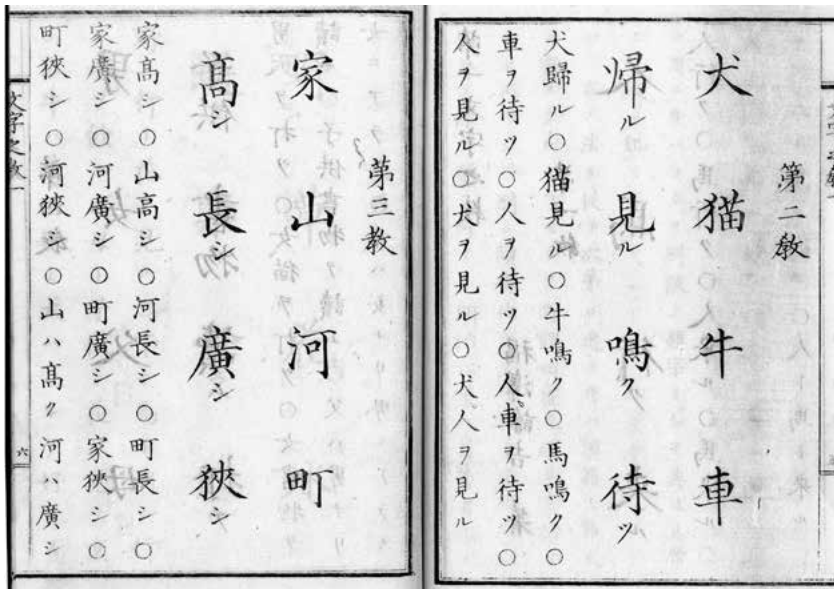 第二教
犬 猫 牛 車
帰ル 見ル 鳴ク 待ツ
犬歸ル○猫見ル○牛鳴ク○馬鳴ク○
車ヲ待ツ○人ヲ待ツ○人車ヲ待ツ○
人ヲ見ル○犬ヲ見ル○犬人ヲ見ル
第三教
家 山 河 町
髙シ 長シ 廣シ 狹シ
家髙シ○山高シ○河長シ○町長シ○
家廣シ○河廣シ○町廣シ○家狹シ○
町狹シ○河狹シ○山ハ髙ク河ハ廣シ
文字之教一
六